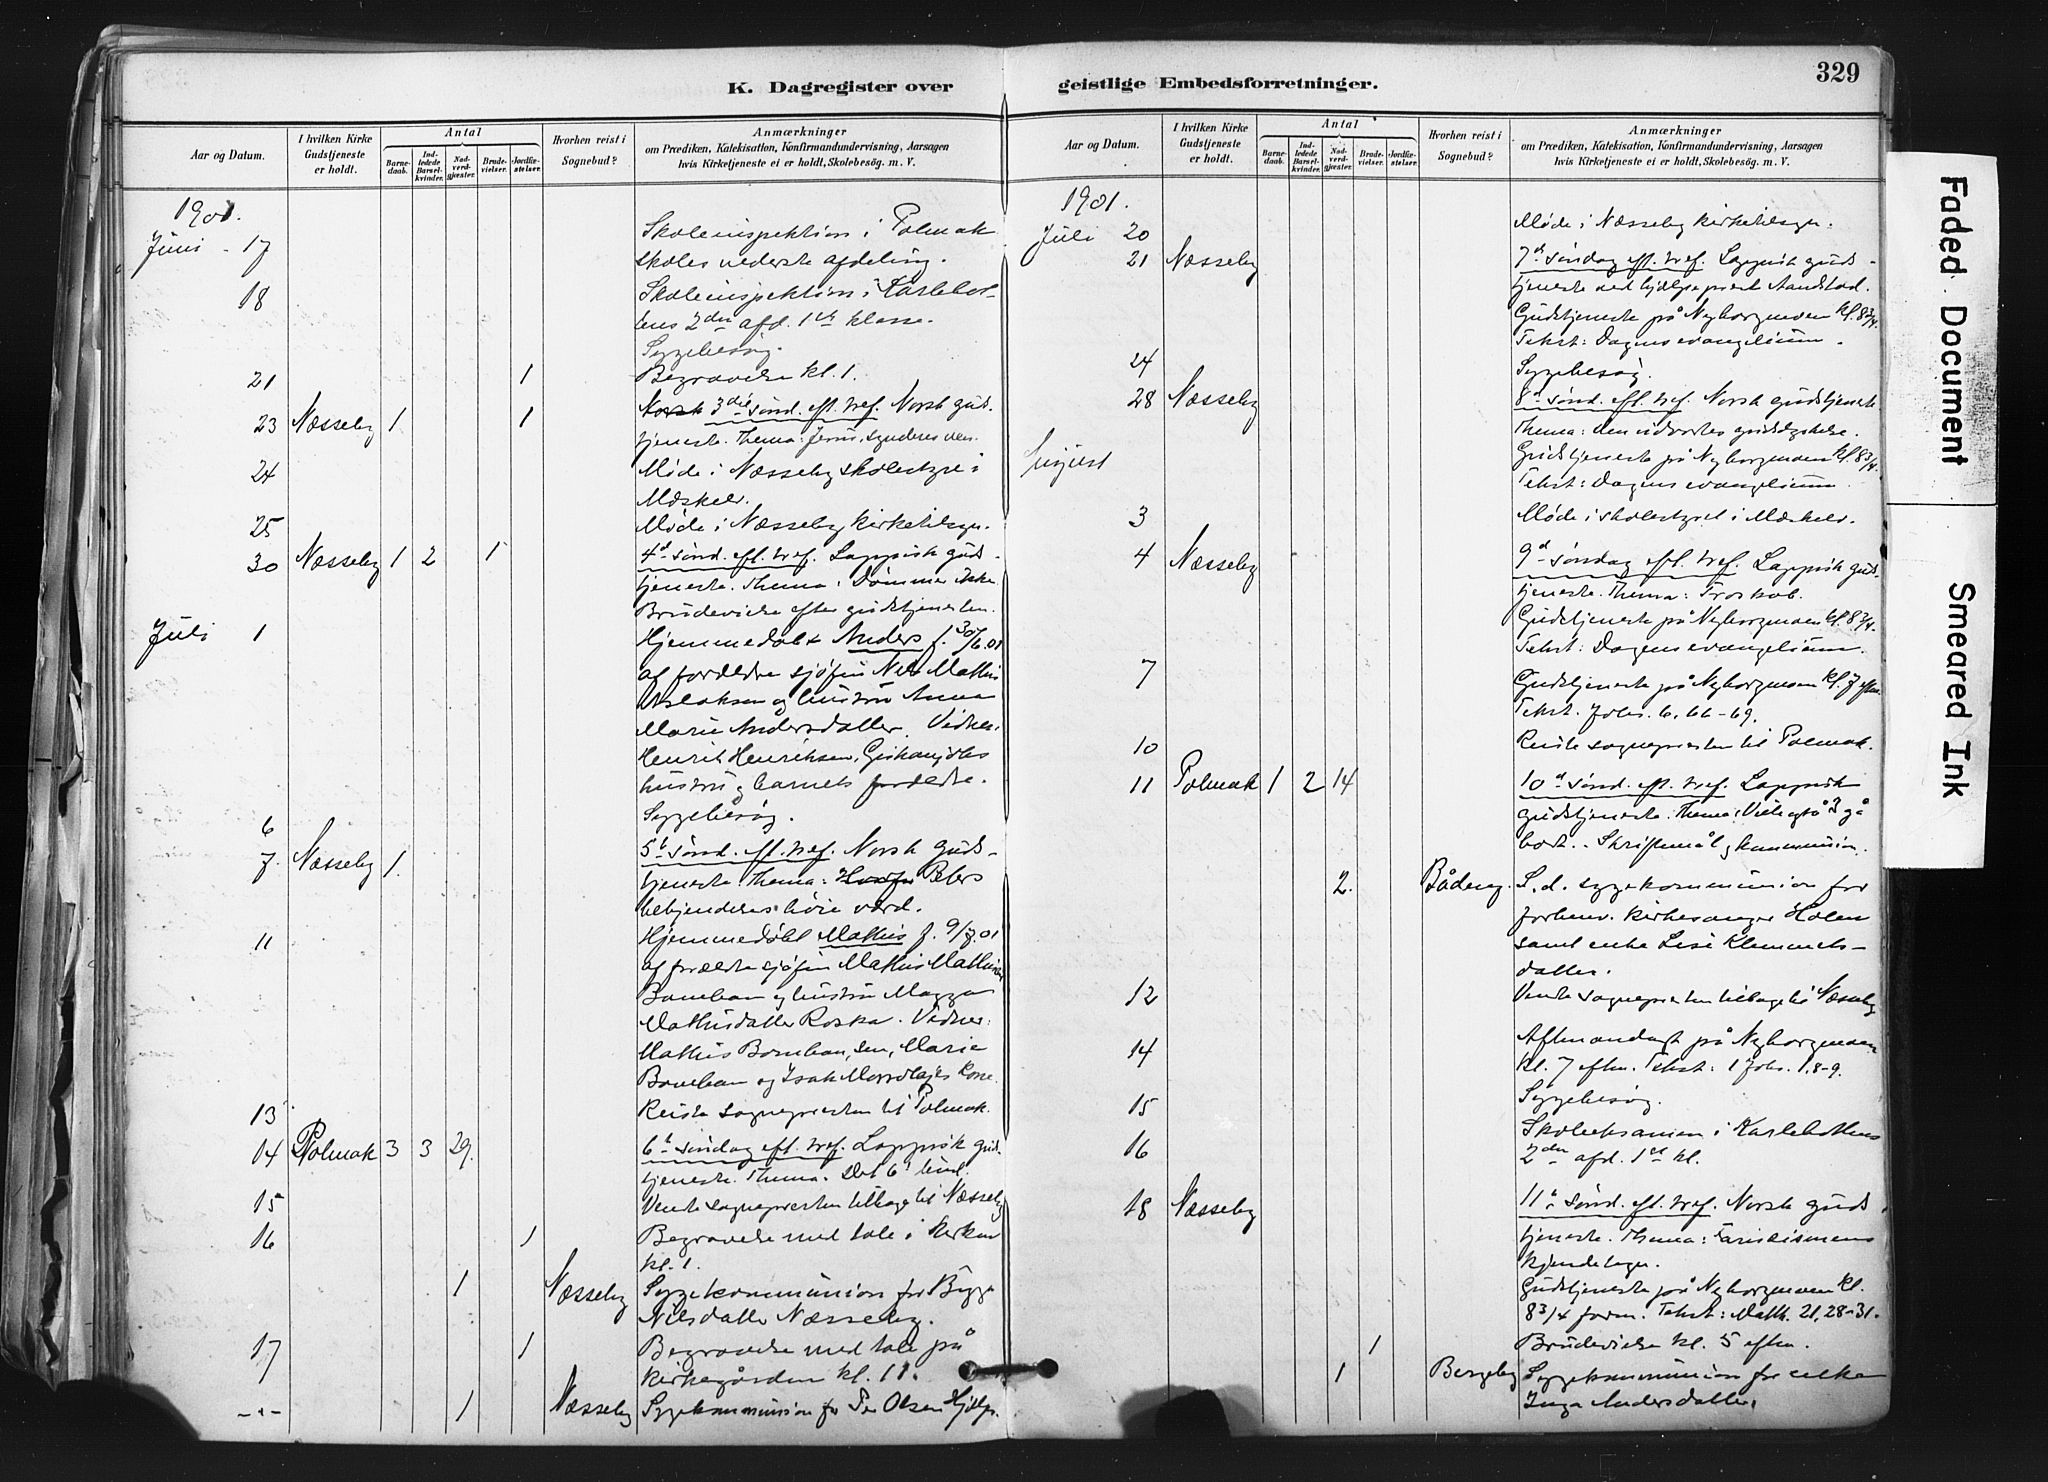 K. Dagregister over
Aar og Datum.
I hvilken Kirke Gudstjeneste er holdt.
Antal
Barne-daab.
Ind-ledede Barsel-kvinder.
Nad-verd-gjæster.
Brude-vielser.
Jordfæ-stelser.
Hvorhen reist i Sognebud?
Anmærkninger
om Prædiken, Katekisation, Konfirmandundervisning, Aarsagen
hvis Kirketjeneste ei er holdt, Skolebesøg. m. V.
1901.
Juni - 17 Skoleinspektion i Polmak
skoles nederste afdeling.
18 Skoleinspektion i Karlebot-
tens 2den afd. 1ste klasse.
Sygebesøg.
21 1 Begravelse kl. 1.
23 Næsseby 1 1 Norsk 3die sønd. eft. tref. Norsk guds-
tjeneste. Thema: Jesus, synderes ven.
24 Møde i Næsseby skolestyre i
Mæskelv.
25 Møde i Næsseby kirketilsyn.
30 Næsseby 1 2 1 4d sønd. eft. tref. Lappisk guds-
tjeneste. Thema: Dømmer ikke.
Brudevielse efter gudstjenesten.
Juli 1 Hjemmedøbt Anders f. 30/6.01
af forældre sjøfin Nils Mathis
Aslaksen og hustru Anna
Marie Andersdatter. Vidner:
Henrik Henriksen,
hustru og barnets forældre.
6 Sygebesøg.
7. Næsseby 1. 5t sønd. eft. tref. Norsk guds-
tjeneste. Thema: Peters
bekjendelses høie værd.
11 Hjemmedøbt Mathis f. 9/7.01
af forældre sjøfin Mathis Mathisen
Bomban og hustru Magga
Mathisdatter Roska. Vidner:
Mathis Bomban, sen, Marie
Bomban og Isak
13 Reiste sognepresten til Polmak.
14 Polmak 3 3 29. 6t søndag eft. tref. Lappisk guds-
tjeneste. Thema: Det 6t bud.
15 Vendte sognepresten tilbage til Næsseby
16 1 Begravelse med tale i kirken
kl. 1.
1 Næsseby Sygekommunion for
Nilsdatter Næsseby.
17 1 Begravelse med tale på
kirkegården kl. 11.
-"- 1 Næsseby Sygekommunion for Per Olsen
geistlige Embedsforretninger.
329
Aar og Datum.
I hvilken Kirke Gudstjeneste er holdt.
Antal
Barne-daab.
Ind-ledede Barsel-kvinder.
Nad-verd-gjæster.
Brude-vielser.
Jordfæ-stelser.
Hvorhen reist i Sognebud?
Anmærkninger
om Prædiken, Katekisation, Konfirmandundervisning, Aarsagen
hvis Kirketjeneste ei er holdt, Skolebesøg. m. V.
1901.
Juli 20 Møde i Næsseby kirketilsyn.
21 Næsseby 7d søndag eft. tref. Lappisk guds-
tjeneste ved hjælpeprest Aandstad.
Gudstjeneste på Nyborgmoen kl. 8 3/4.
Tekst: Dagens evangelium.
24 Sygebesøg.
28 Næsseby 8d sønd. eft. tref. Norsk gudstjeneste
Thema: den udvortes gudsdyrkelse.
August Gudstjeneste på Nyborgmoen kl. 8 3/4.
Tekst: Dagens evangelium.
3 Møde i skolestyret i Mæskelv.
4 Næsseby 9d søndag eft. tref. Lappisk guds-
tjeneste. Thema: Troskab.
Gudstjeneste på Nyborgmoen kl. 8 3/4.
Tekst: Dagens evangelium.
7 Gudstjeneste på Nyborgmoen kl. 7 eftm.
Tekst. Johs. 6, 66-69.
10 Reiste sognepresten til Polmak.
11 Polmak 1 2 14 10d sønd. eft. tref. Lappisk
gudstjeneste. Thema: Vil også I gå
bort. - Skriftemål og kommunion.
2. S. d. sygekommunion for
forhenv. kirkesanger Holm
samt enke Lisi Klemmets-
datter.
12 Vendte sognepresten tilbage til Næsseby
14 Aftenandagt på Nyborgmoen
kl. 7 eftm. Tekst: 1 Johs. 1, 8-9.
15 Sygebesøg.
16 Skoleeksamen i Karlebottens
2den afd. 1ste kl.
18 Næsseby 11te sønd. eft. tref. Norsk guds
tjeneste. Thema: Fariseismens
kjendetegn.
Gudstjeneste på Nyborgmoen kl.
8 3/4 form. Tekst: Math. 21, 28-31.
1 Brudevielse kl. 5 eftm.
1 Bergeby Sygekommunion for enke
Inga Andersdatter.
Faded Document
Smeared Ink